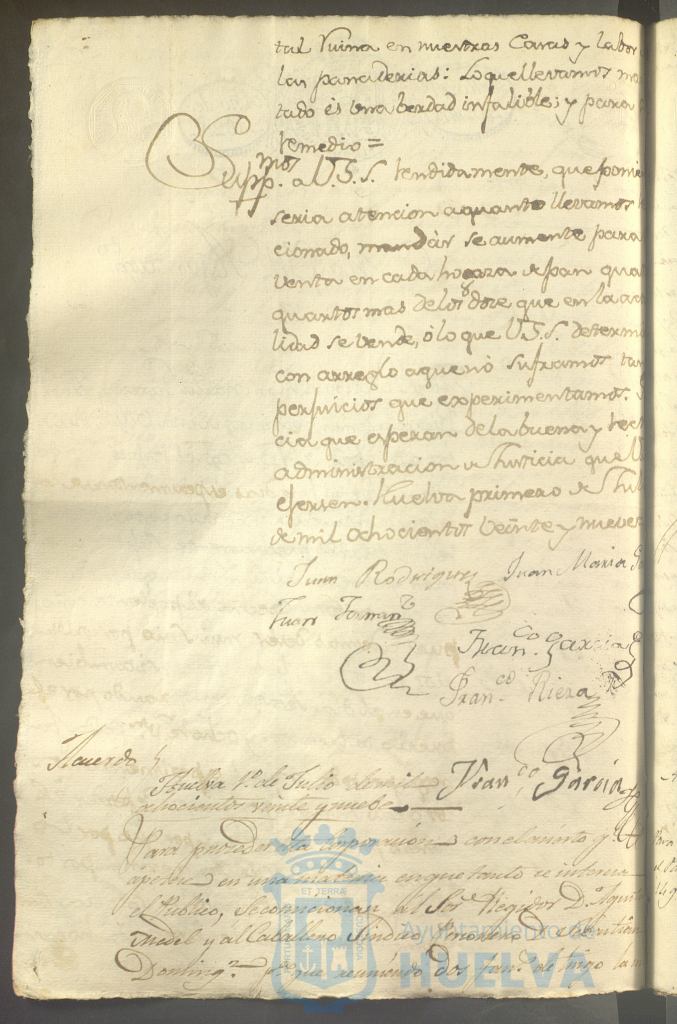 tal Ruina en nuestras Casas y labor
las panaderias: Lo que llevamos
tado és una berdad infalible; y para
remedio =
Suppmos. a V.S.S. rendidamente, que ponie
seria atencion a quanto llevamos
cionado, mandár se aumente para
venta en cada hogaza de pan qua
quartos mas de los doze que en la a
lidad se vende, ó lo que V.S.S. determ
con arreglo a que nó suframos tan
perjuicios que experimentamos.
cia que esperan de la buena y rec
administracion de Justicia que
ejersen. Huelva primero de
de mil ochocientos veinte y nueve
Juan Rodrigues Juan Maria
Juan Fernandz
Franco. Garcia
Franco. Riera
Franco. Garcia
Acuerdo
Huelva 1º. de Julio de mil
ochocientos veinte y nueve
Para proceder esta Corporación con el acierto q.e
apetece en una materia en que tanto se interesa
el Publico, Se comicionan al Sor. Regidor Dn.
y al Caballero Sindico Dn. Sebastian
Doming.z pa. que reuniendo dos fans. de trigo
ET TERRA
Ayuntamiento de
HUELVA